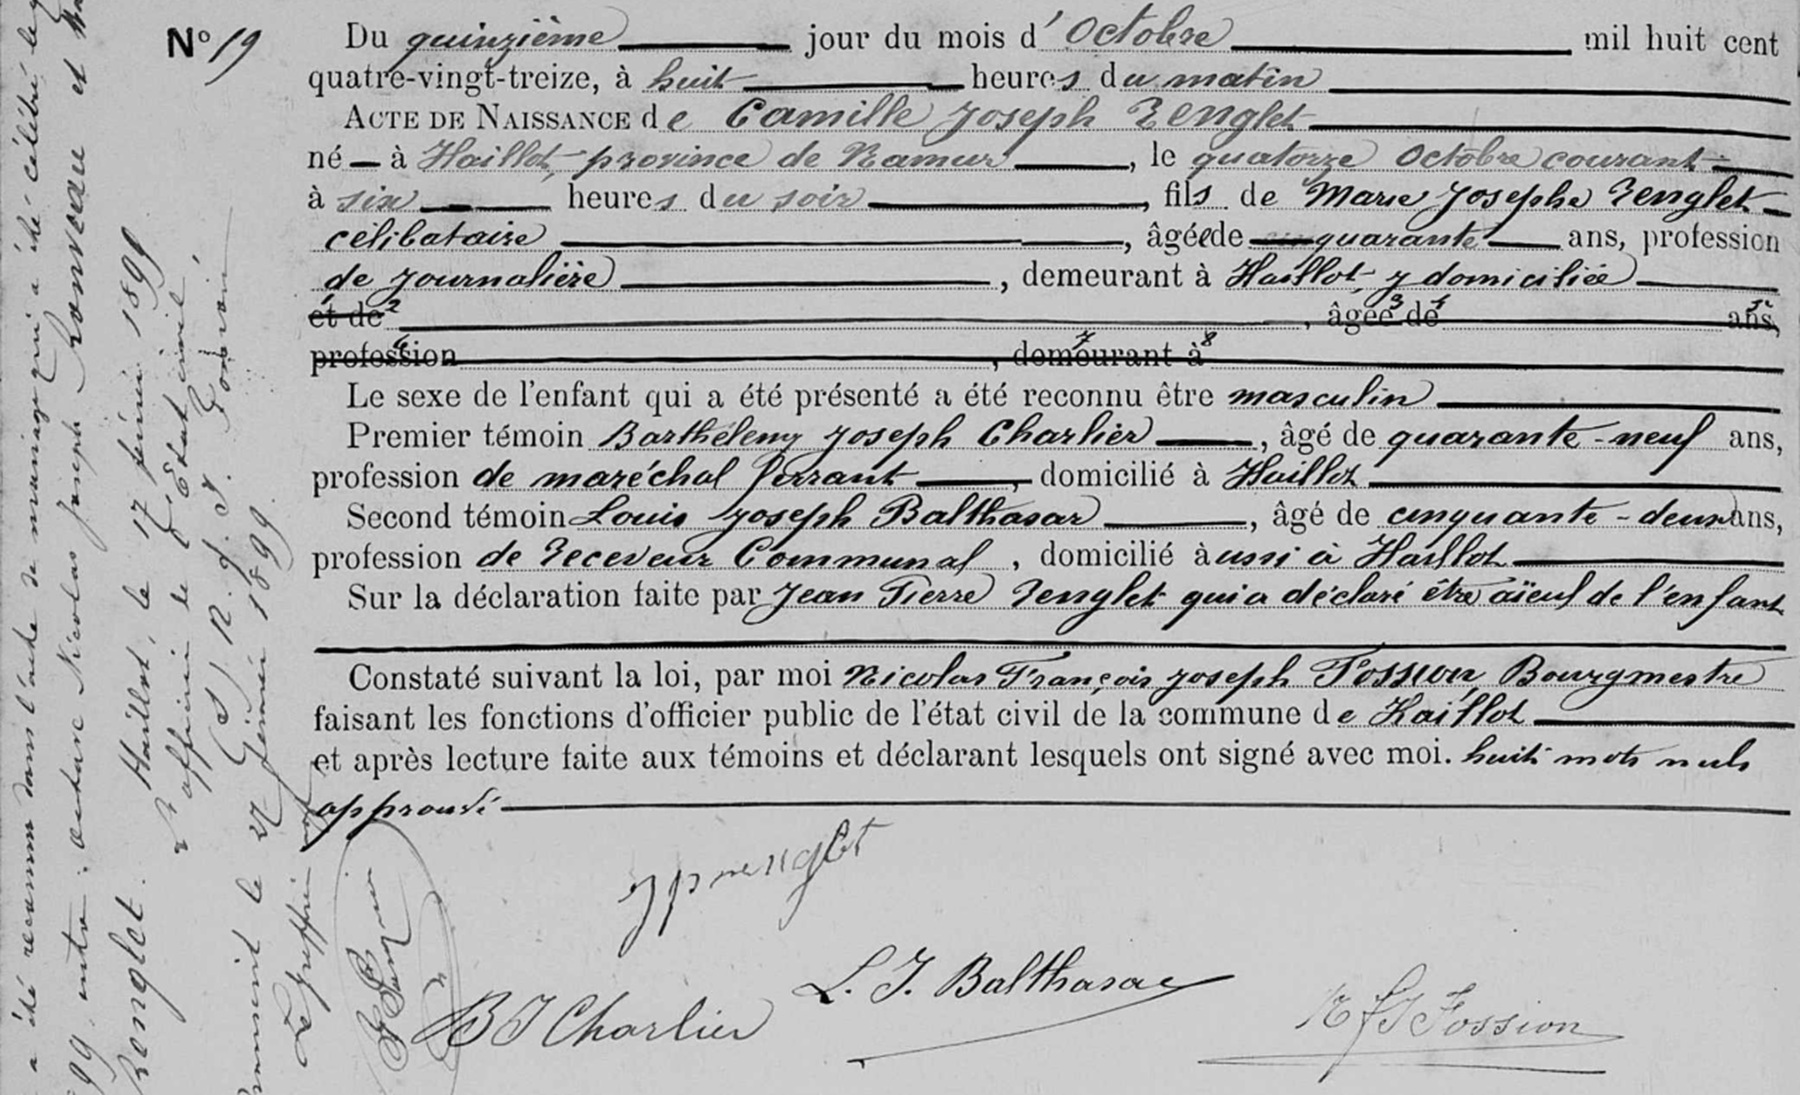 N° 19
Du quinzième jour du mois d'Octobre mil huit cent
quatre-vingt-treize, à huit heures du matin
ACTE DE NAISSANCE de Camille Joseph Renglet
né à Haillot, province de Namur, le quatorze Octobre courant
à six heures du soir, fils de Marie Josephe Renglet
célibataire, âgée de quarante ans, profession
de journalière, demeurant à Haillot, y domiciliée
et de 2, âgée 3 de 4 ans, 5
profession 6, demeurant 7 à 8
Le sexe de l'enfant qui a été présenté a été reconnu être masculin
Premier témoin Barthélemy Joseph Charlier, âgé de quarante-neuf ans,
profession de maréchal ferrant, domicilié à Haillot
Second témoin Louis Joseph Balthasar, âgé de cinquante-deux ans,
profession de receveur Communal, domicilié aussi à Haillot
Sur la déclaration faite par Jean Pierre Renglet qui a déclaré être aïeul de l'enfant
Constaté suivant la loi, par moi Nicolas François Joseph Fossion Bourgmestre
faisant les fonctions d'officier public de l'état civil de la commune de Haillot
et après lecture faite aux témoins et déclarant lesquels ont signé avec moi. huit mots nuls
approuvé
jp renglet
L. J. Balthasar
BJ Charlier
N f J Fossion
a été reconnu dans l'acte de mariage qui a été célébré le
99 entre Nicolas Joseph et
Renglet.
Haillot, le 17 février 1899
L'officier de l'État civil,
(S) N. f. J. Fossion
le 27 février 1899.
Le greffier